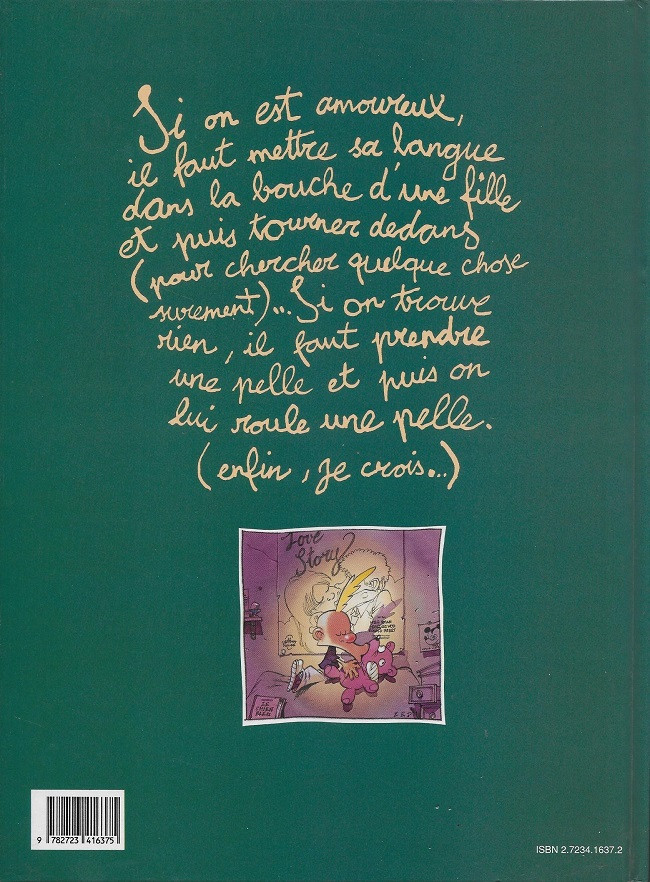 Si on est amoureux,
il faut mettre sa langue
dans la bouche d'une fille
et puis tourner dedans
(pour chercher quelque chose
surement)... Si on trouve
rien, il faut prendre
une pelle et puis on
lui roule une pelle.
(enfin, je crois...)
Love
Story
9 782723 416375
ISBN 2.7234.1637.2